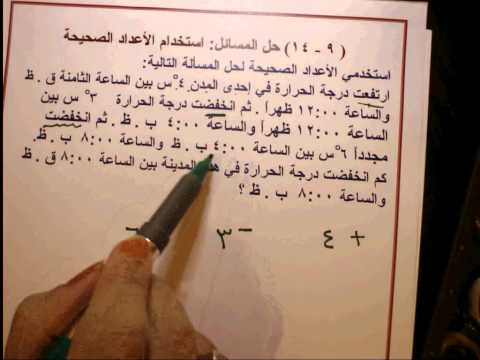 (٩ - ١٤) حل المسائل: استخدام الأعداد الصحيحة
استخدمي الأعداد الصحيحة لحل المسألة التالية:
ارتفعت درجة الحرارة في إحدى المدن ٤ °س بين الساعة الثامنة ق . ظ
والساعة ١٢:٠٠ ظهراً . ثم انخفضت درجة الحرارة ٣ °س بين
الساعة ١٢:٠٠ ظهراً والساعة ٤:٠٠ ب . ظ. ثم انخفضت
مجدداً ٦ °س بين الساعة ٤:٠٠ ب . ظ والساعة ٨:٠٠ ب . ظ.
كم انخفضت درجة الحرارة في المدينة بين الساعة ٨:٠٠ ق . ظ
والساعة ٨:٠٠ ب . ظ ؟
+ ٤ - ٣ -